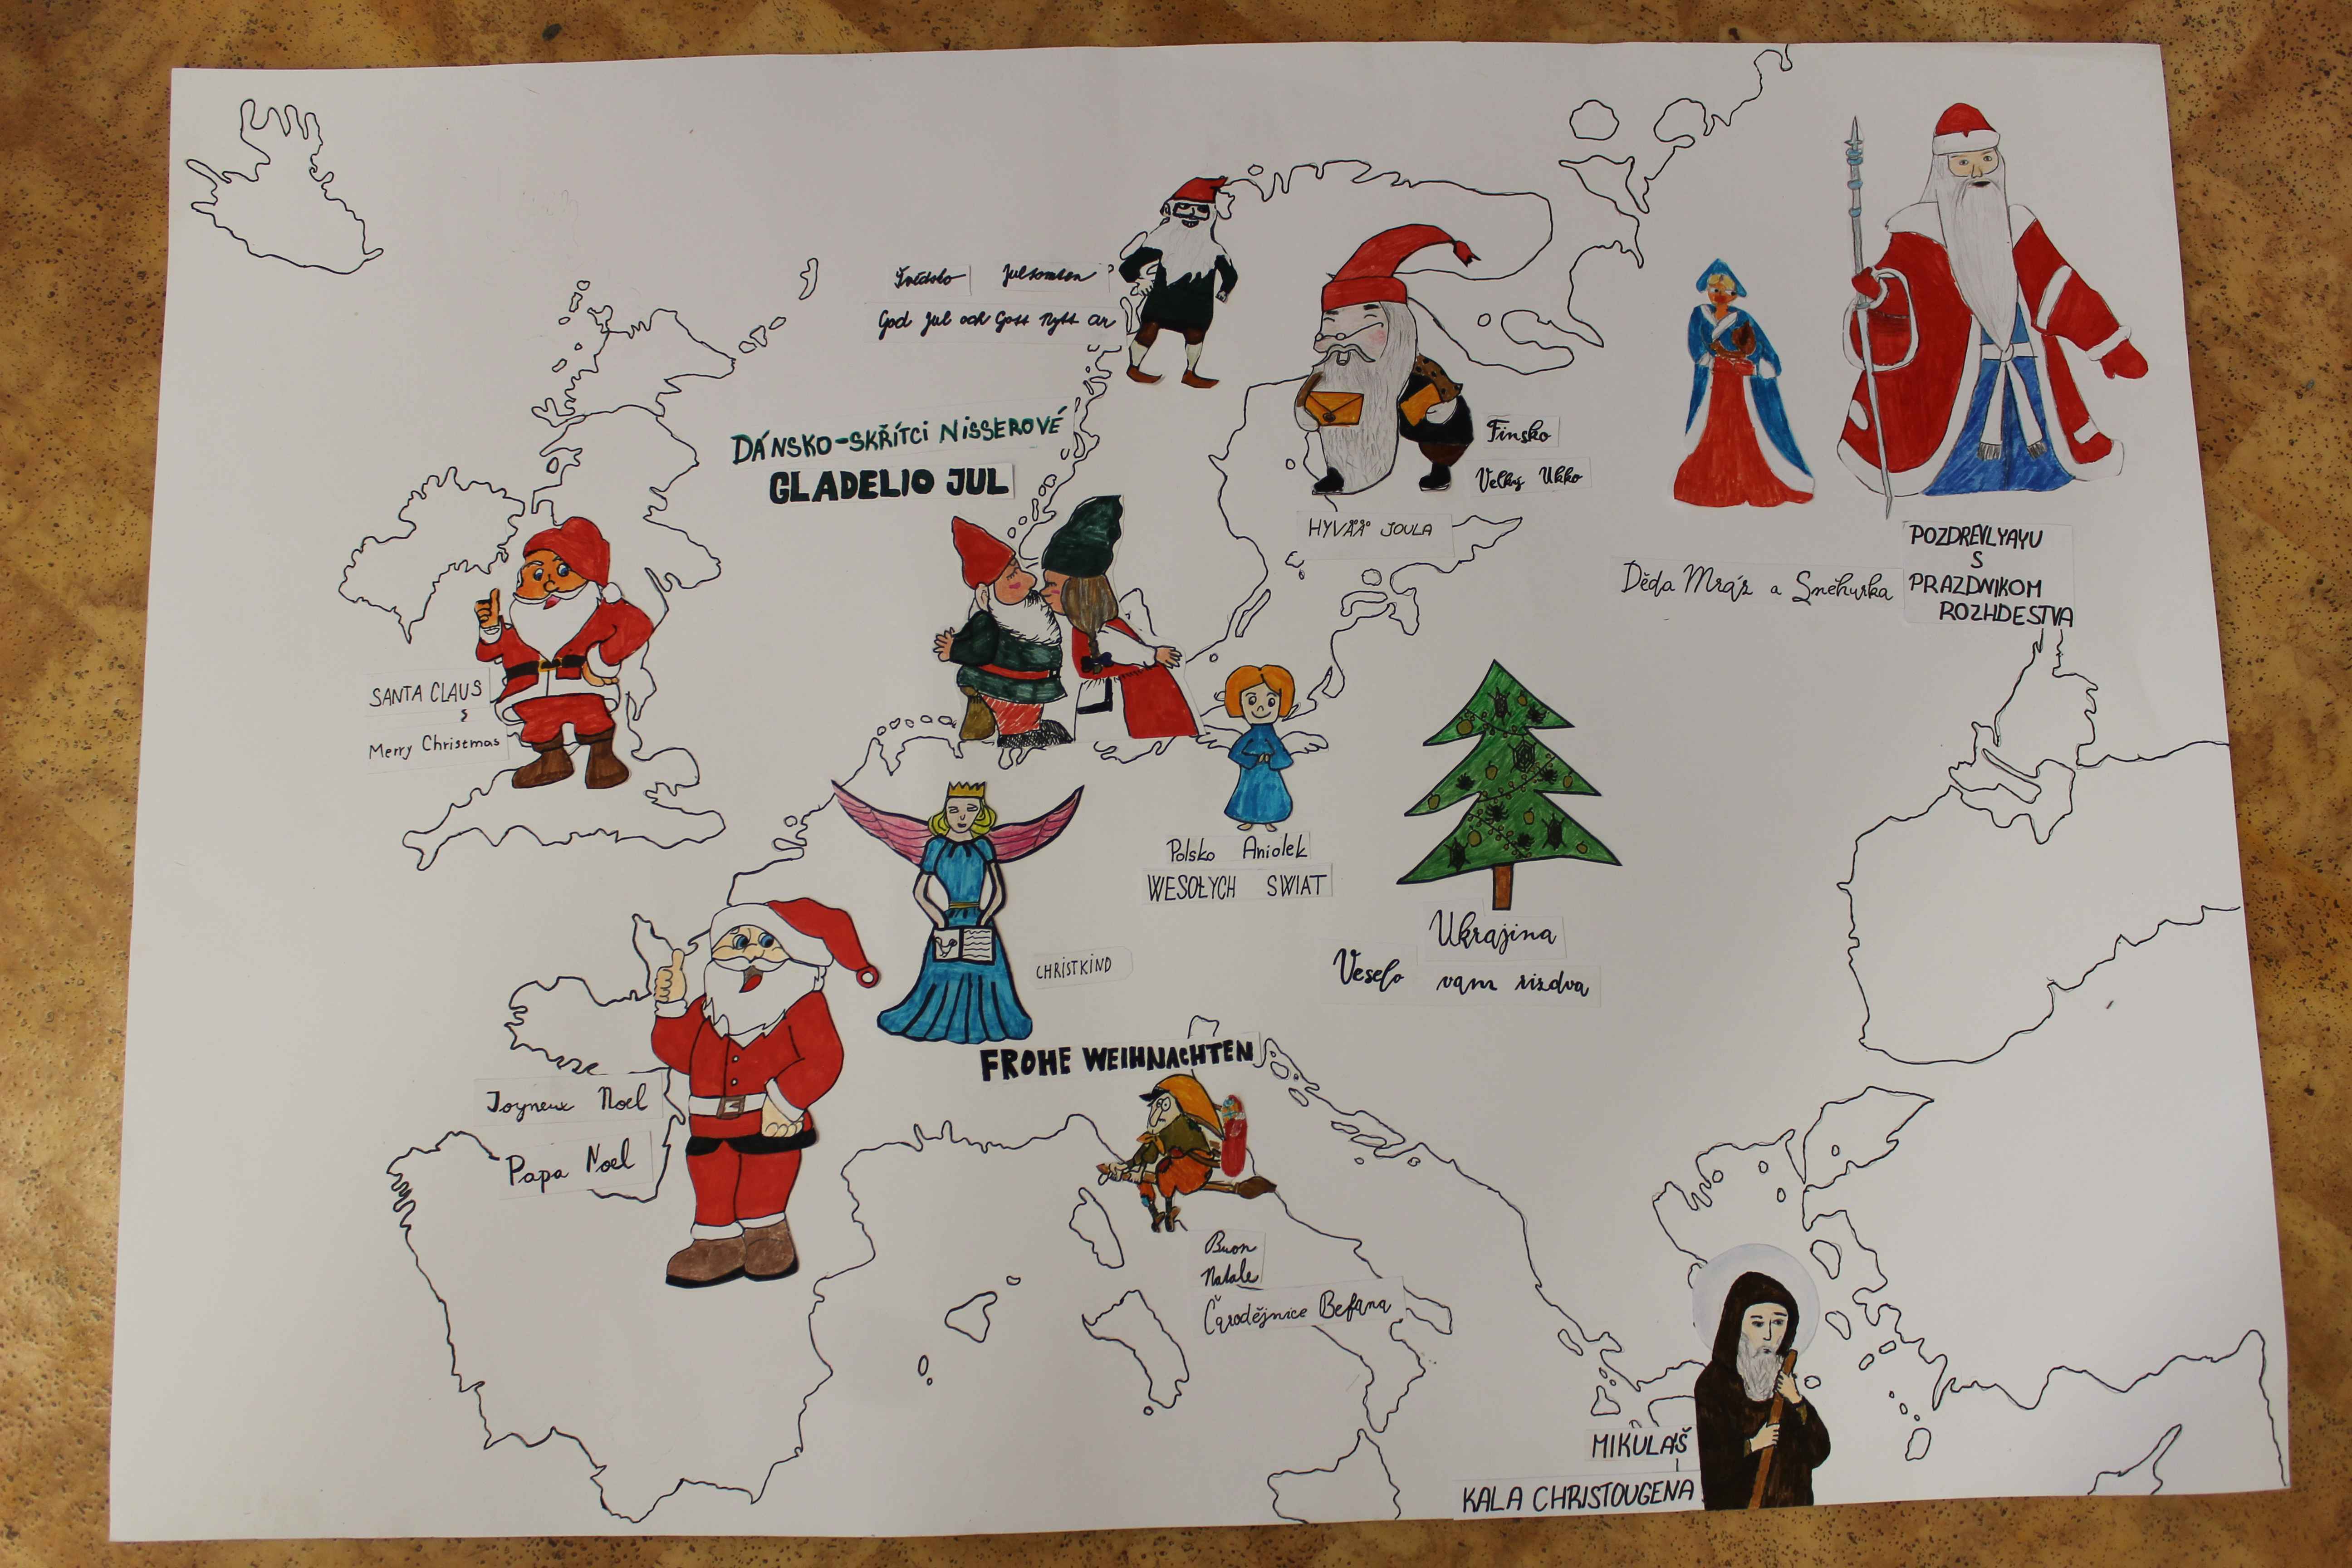 Švédsko Jultomten
God Jul och Gott Nytt År
DÁNSKO-SKŘÍTCI NISSEROVÉ
GLADELIO JUL
Finsko
Velký Ukko
HYVÄÄ JOULA
Děda Mráz a Sněhurka
POZDREVLYAYU
S
PRAZDNIKOM
ROZHDESTVA
SANTA CLAUS
Merry Christmas
Polsko Aniolek
WESOŁYCH SWIAT
Ukrajina
Veselo vam rizdva
CHRISTKIND
FROHE WEIHNACHTEN
Joyneux Noel
Papa Noel
Buon
Natale
Čarodějnice Befana
MIKULÁŠ
KALA CHRISTOUGENA